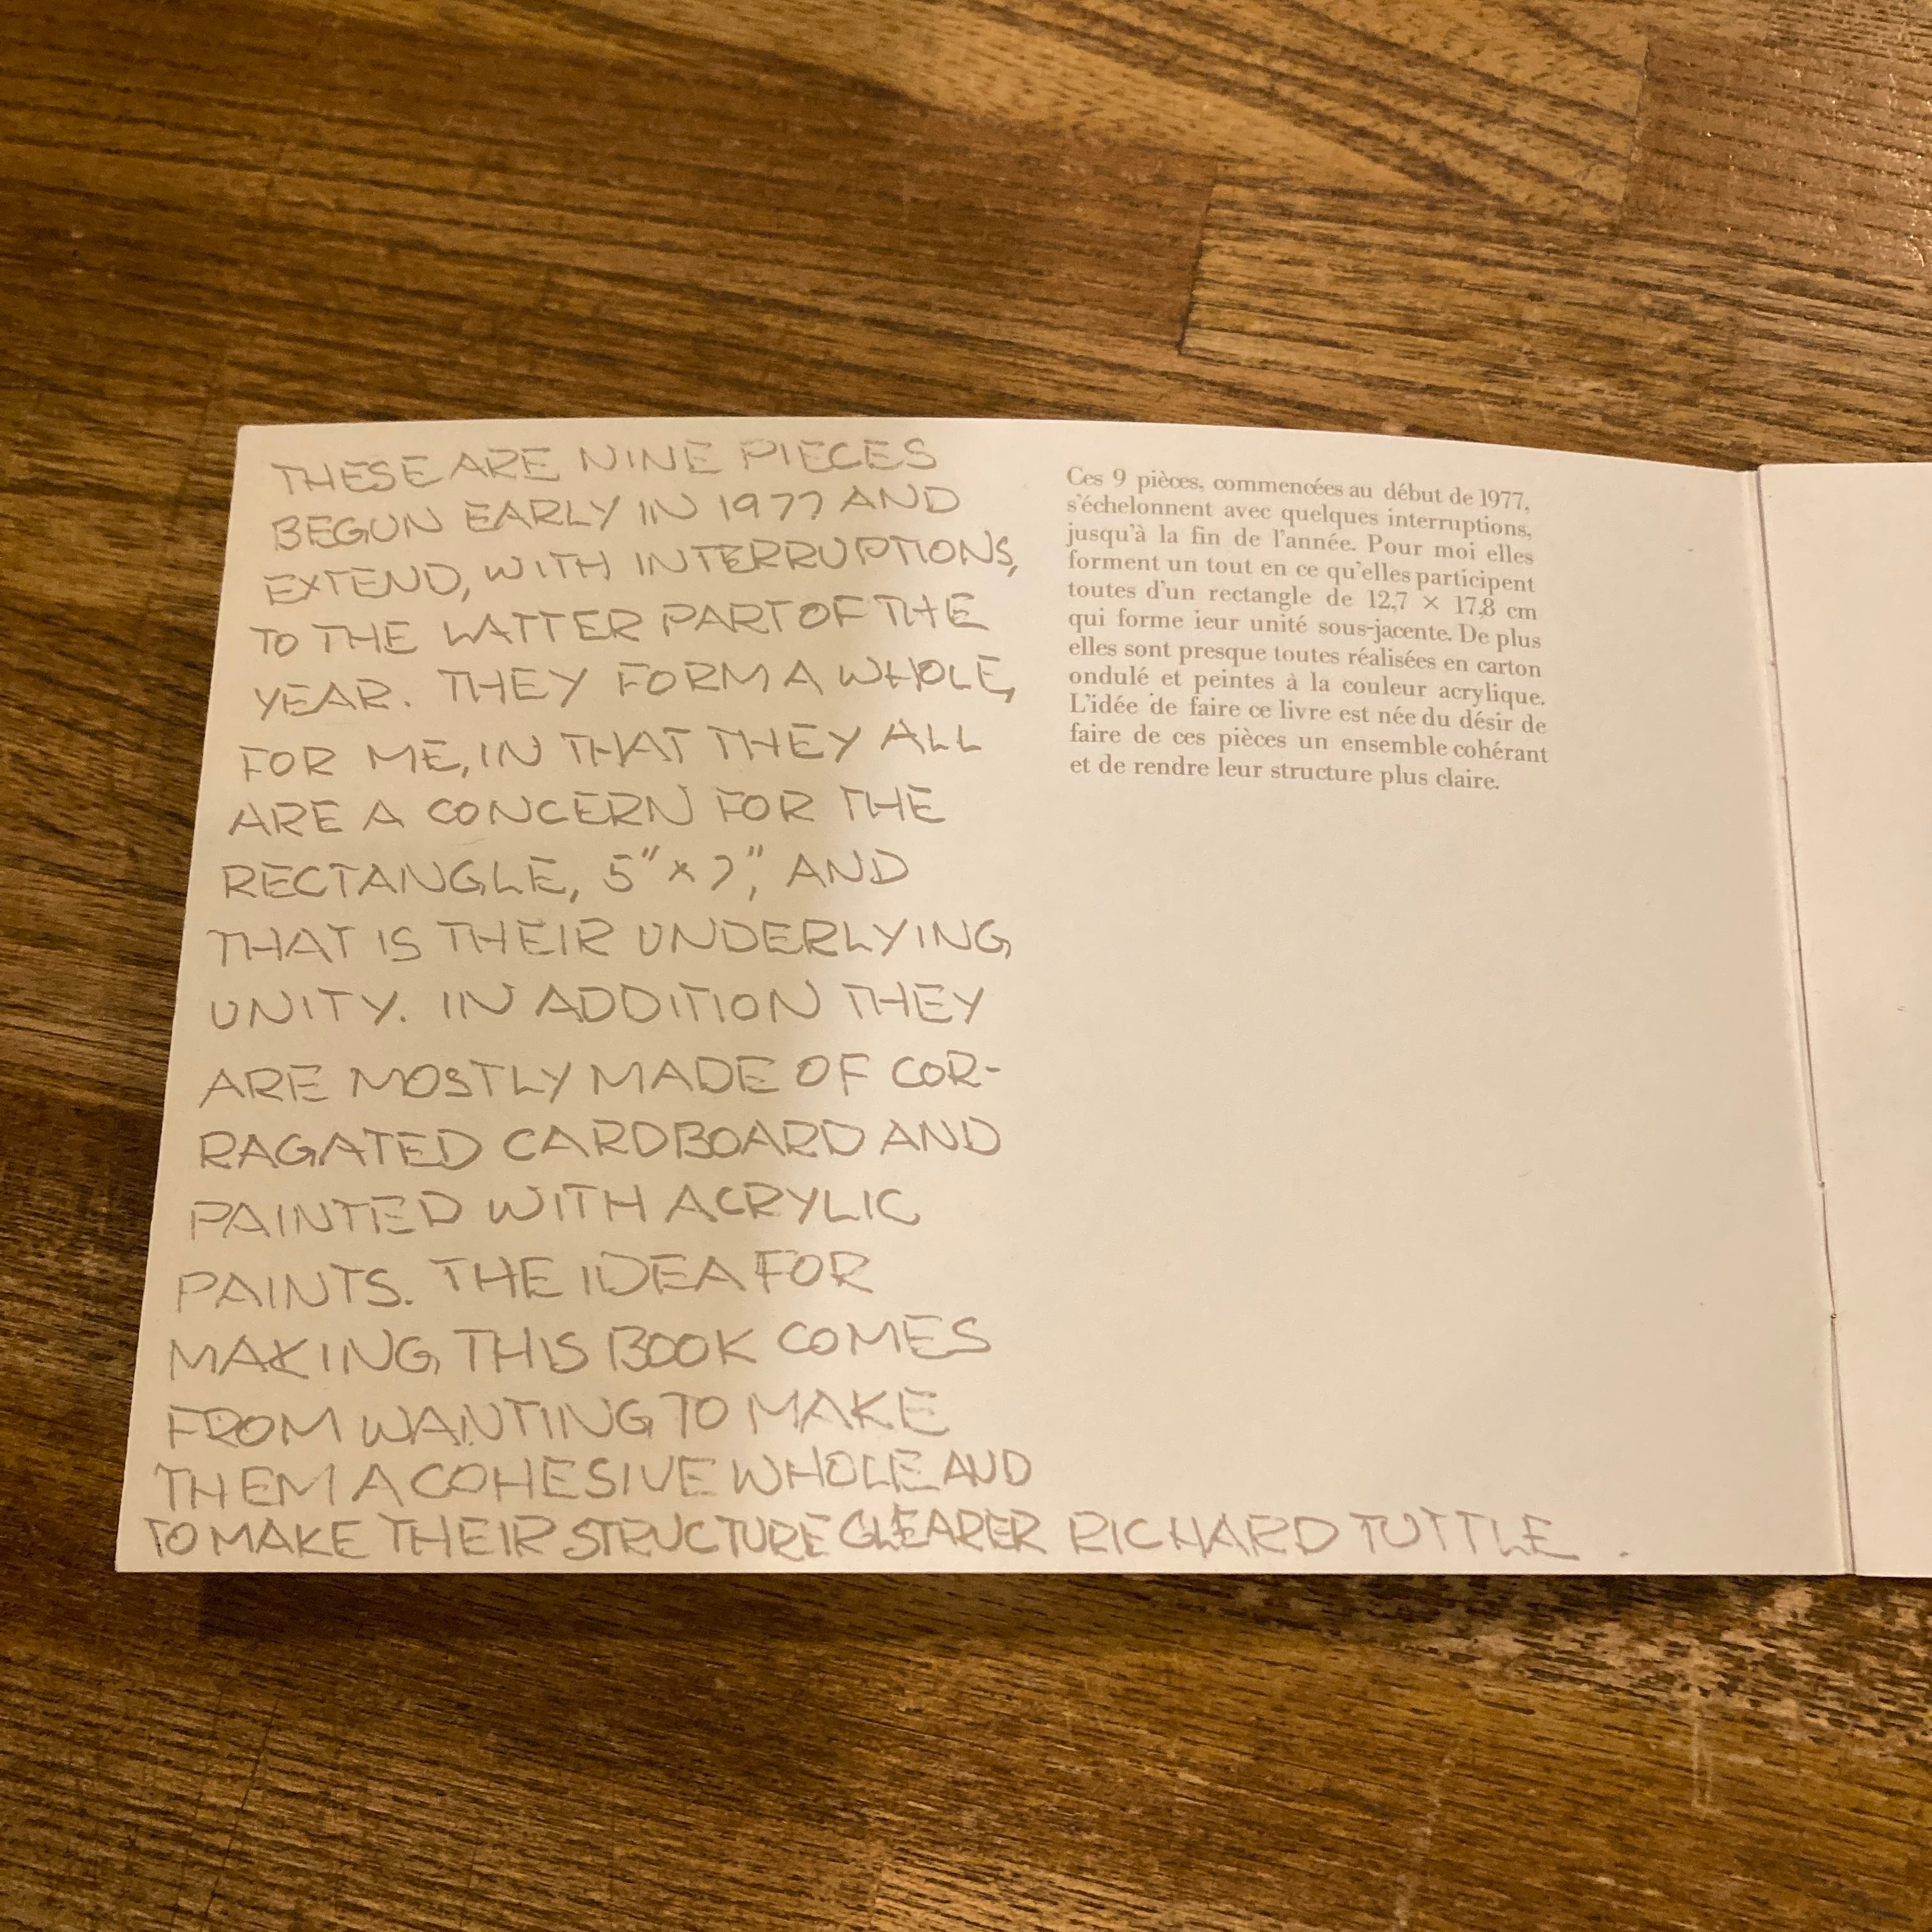 THESE ARE NINE PIECES
BEGUN EARLY IN 1977 AND
EXTEND, WITH INTERRUPTIONS,
TO THE LATTER PART OF THE
YEAR. THEY FORM A WHOLE,
FOR ME, IN THAT THEY ALL
ARE A CONCERN FOR THE
RECTANGLE, 5" × 7", AND
THAT IS THEIR UNDERLYING,
UNITY. IN ADDITION THEY
ARE MOSTLY MADE OF COR-
RAGATED CARDBOARD AND
PAINTED WITH ACRYLIC
PAINTS. THE IDEA FOR
MAKING THIS BOOK COMES
FROM WANTING TO MAKE
THEM A COHESIVE WHOLE AND
TO MAKE THEIR STRUCTURE CLEARER RICHARD TUTTLE .
Ces 9 pièces, commencées au début de 1977,
s'échelonnent avec quelques interruptions,
jusqu'à la fin de l'année. Pour moi elles
forment un tout en ce qu'elles participent
toutes d'un rectangle de 12,7 × 17,8 cm
qui forme ieur unité sous-jacente. De plus
elles sont presque toutes réalisées en carton
ondulé et peintes à la couleur acrylique.
L'idée de faire ce livre est née du désir de
faire de ces pièces un ensemble cohérant
et de rendre leur structure plus claire.